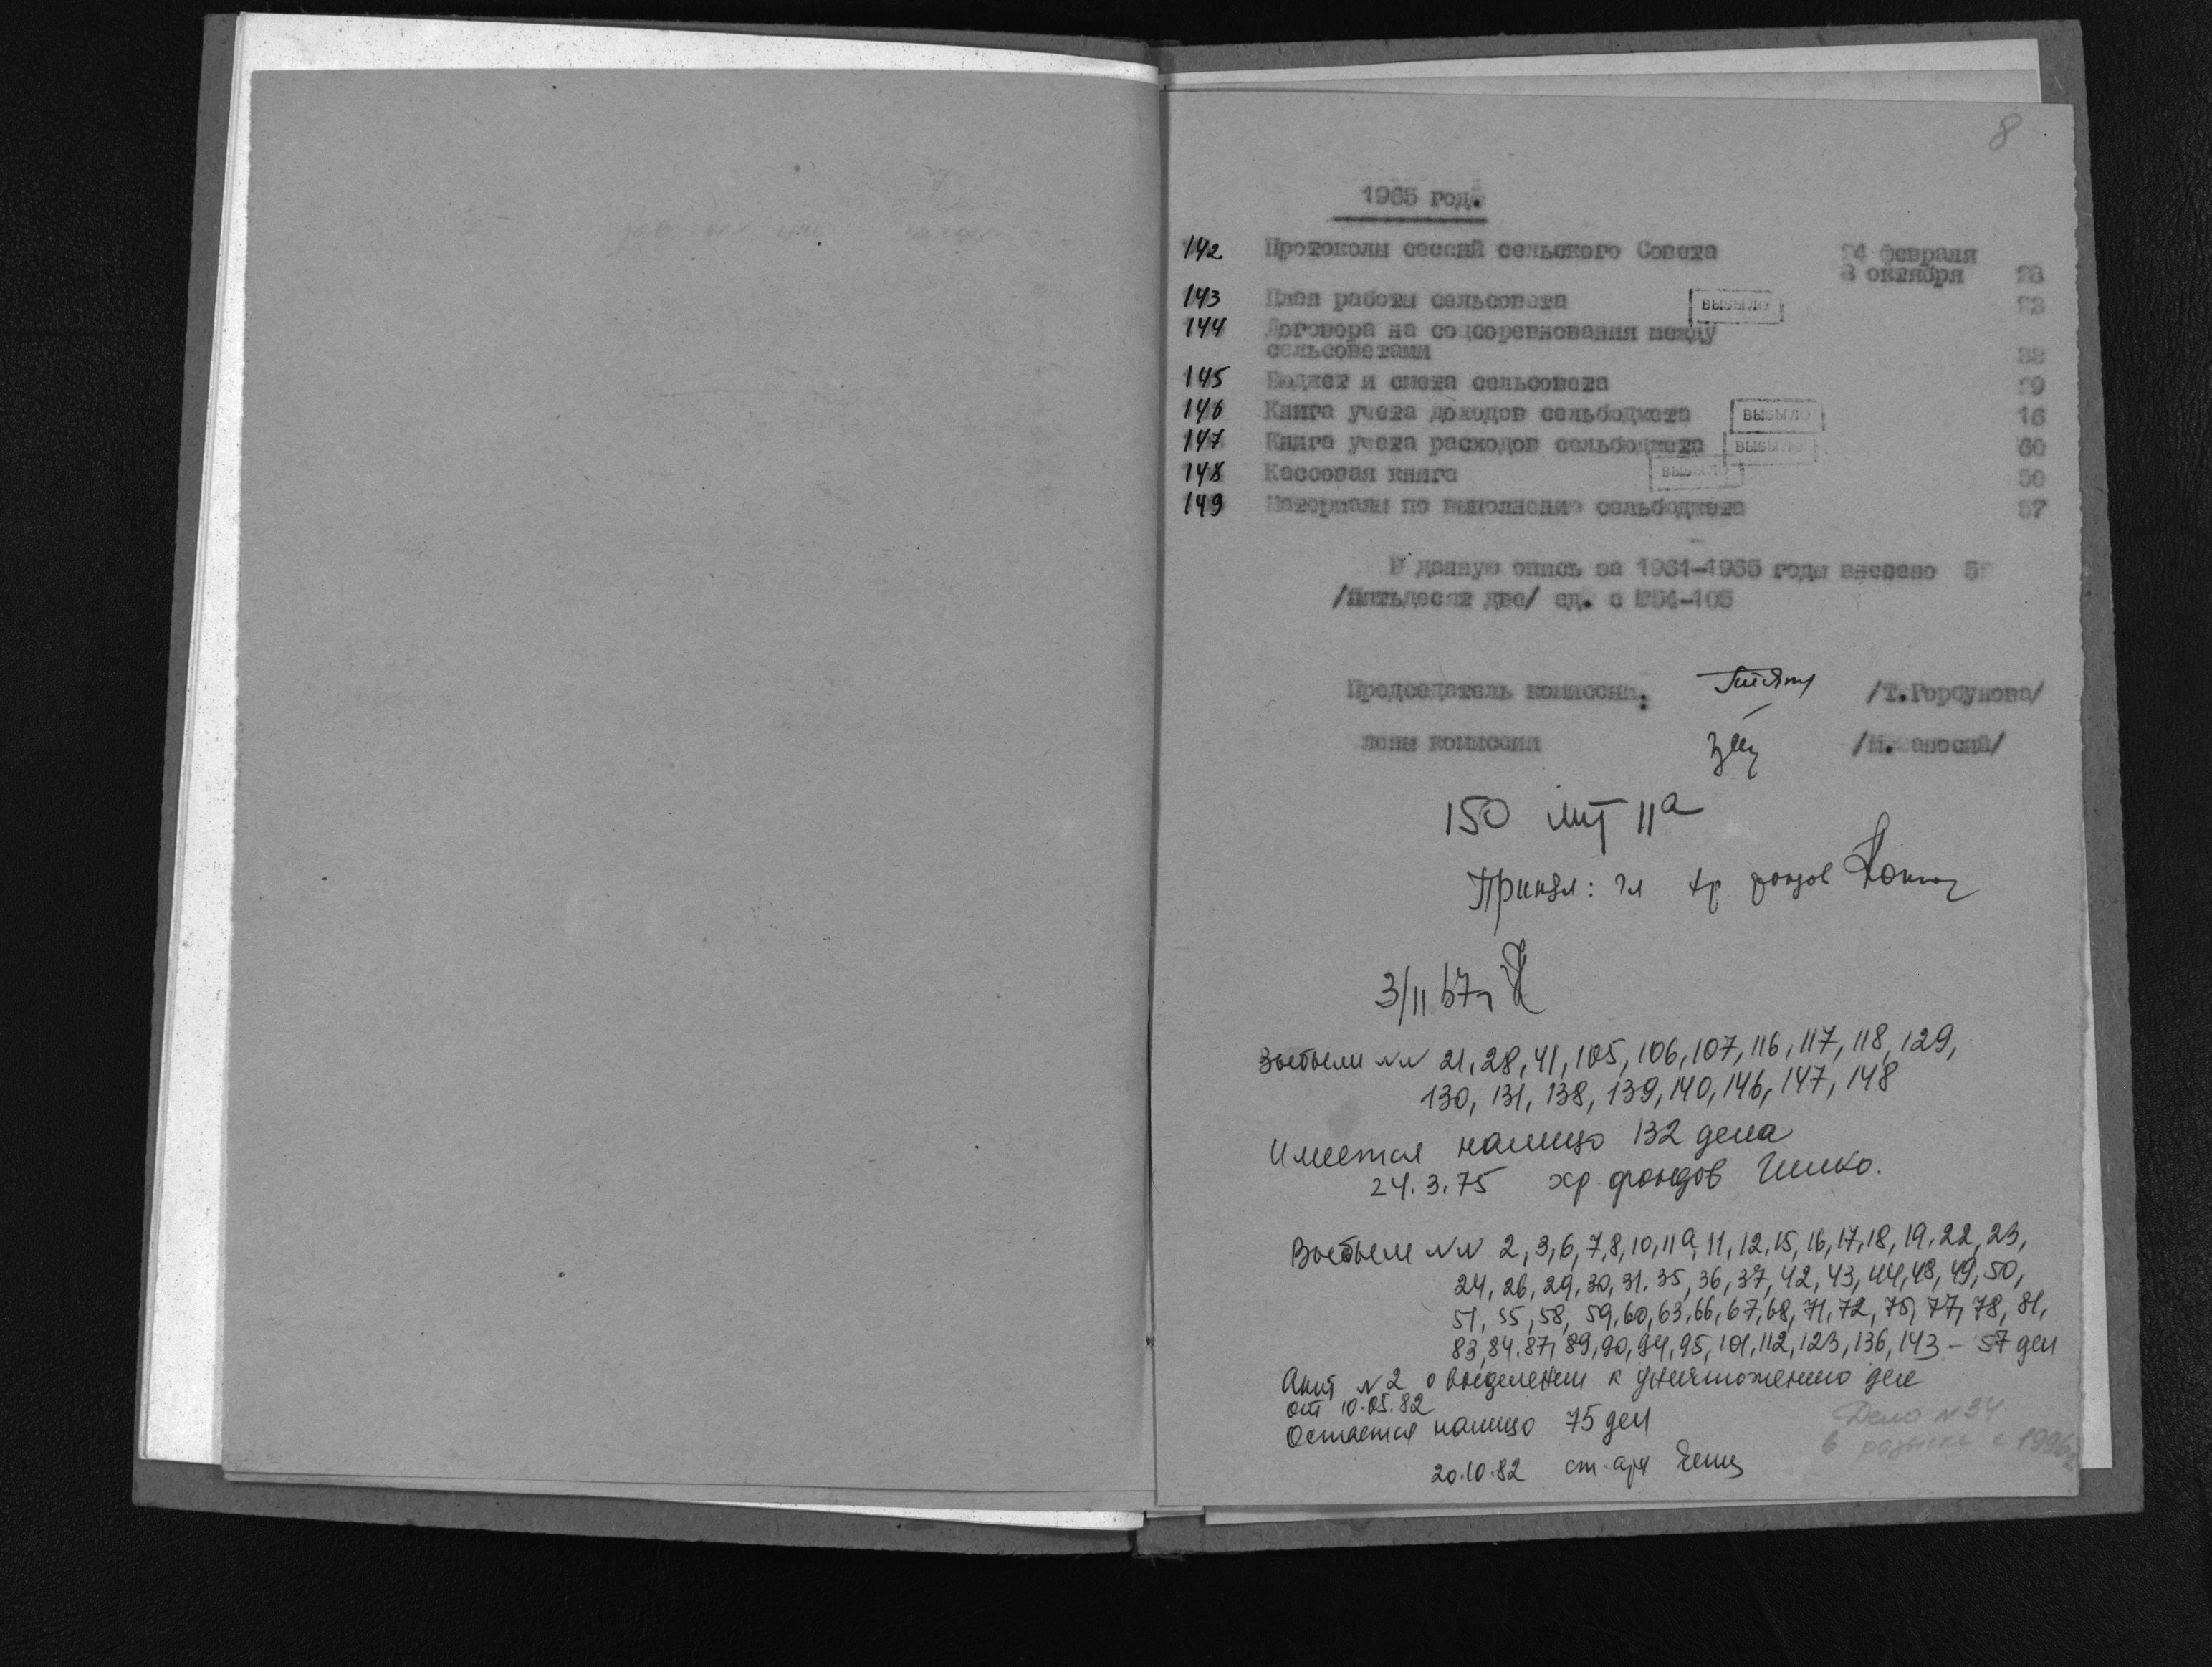 8
1965 год.
142 Протоколы сессий сельского Совета 24 февраля
8 октября 28
143 План работы сельсовета ВЫБЫЛО 23
144 Договора на соцсоревнования между
сельсоветами 38
145 Бюджет и смета сельсовета 29
146 Книга учета доходов сельбюджета ВЫБЫЛО 16
147 Книга учета расходов сельбюджета ВЫБЫЛО 60
148 Кассовая книга ВЫБЫЛО 50
149 Материалы по выполнению сельбюджета 57
В данную опись за 1961-1965 годы внесено
/Пятьдесят две/ ед. с №54-105
Председатель комиссии: /Т.Горбунова/
лены комиссии
150 лит 11а
Принял: гл хр фондов
3/II 67г
Выбыли №№ 21, 28, 41, 105, 106, 107, 116, 117, 118, 129,
130, 131, 138, 139, 140, 146, 147, 148
Имеется налицо 132 дела
24.3.75 хр. фондов
Выбыли №№ 2, 3, 6, 7, 8, 10, 11а, 11, 12, 15, 16, 17, 18, 19, 22, 23,
24, 26, 29, 30, 31, 35, 36, 37, 42, 43, 44, 48, 49, 50,
51, 55, 58, 59, 60, 63, 66, 67, 68, 71, 72, 75, 77, 78, 81,
83, 84, 87, 89, 90, 94, 95, 101, 112, 123, 136, 143 – 57 дел
Акт №2 о выделении к уничтожению дел
от 10.05.82
Остается налицо 75 дел
Дело №34
в розыске с 1996г
20.10.82 ст. арх